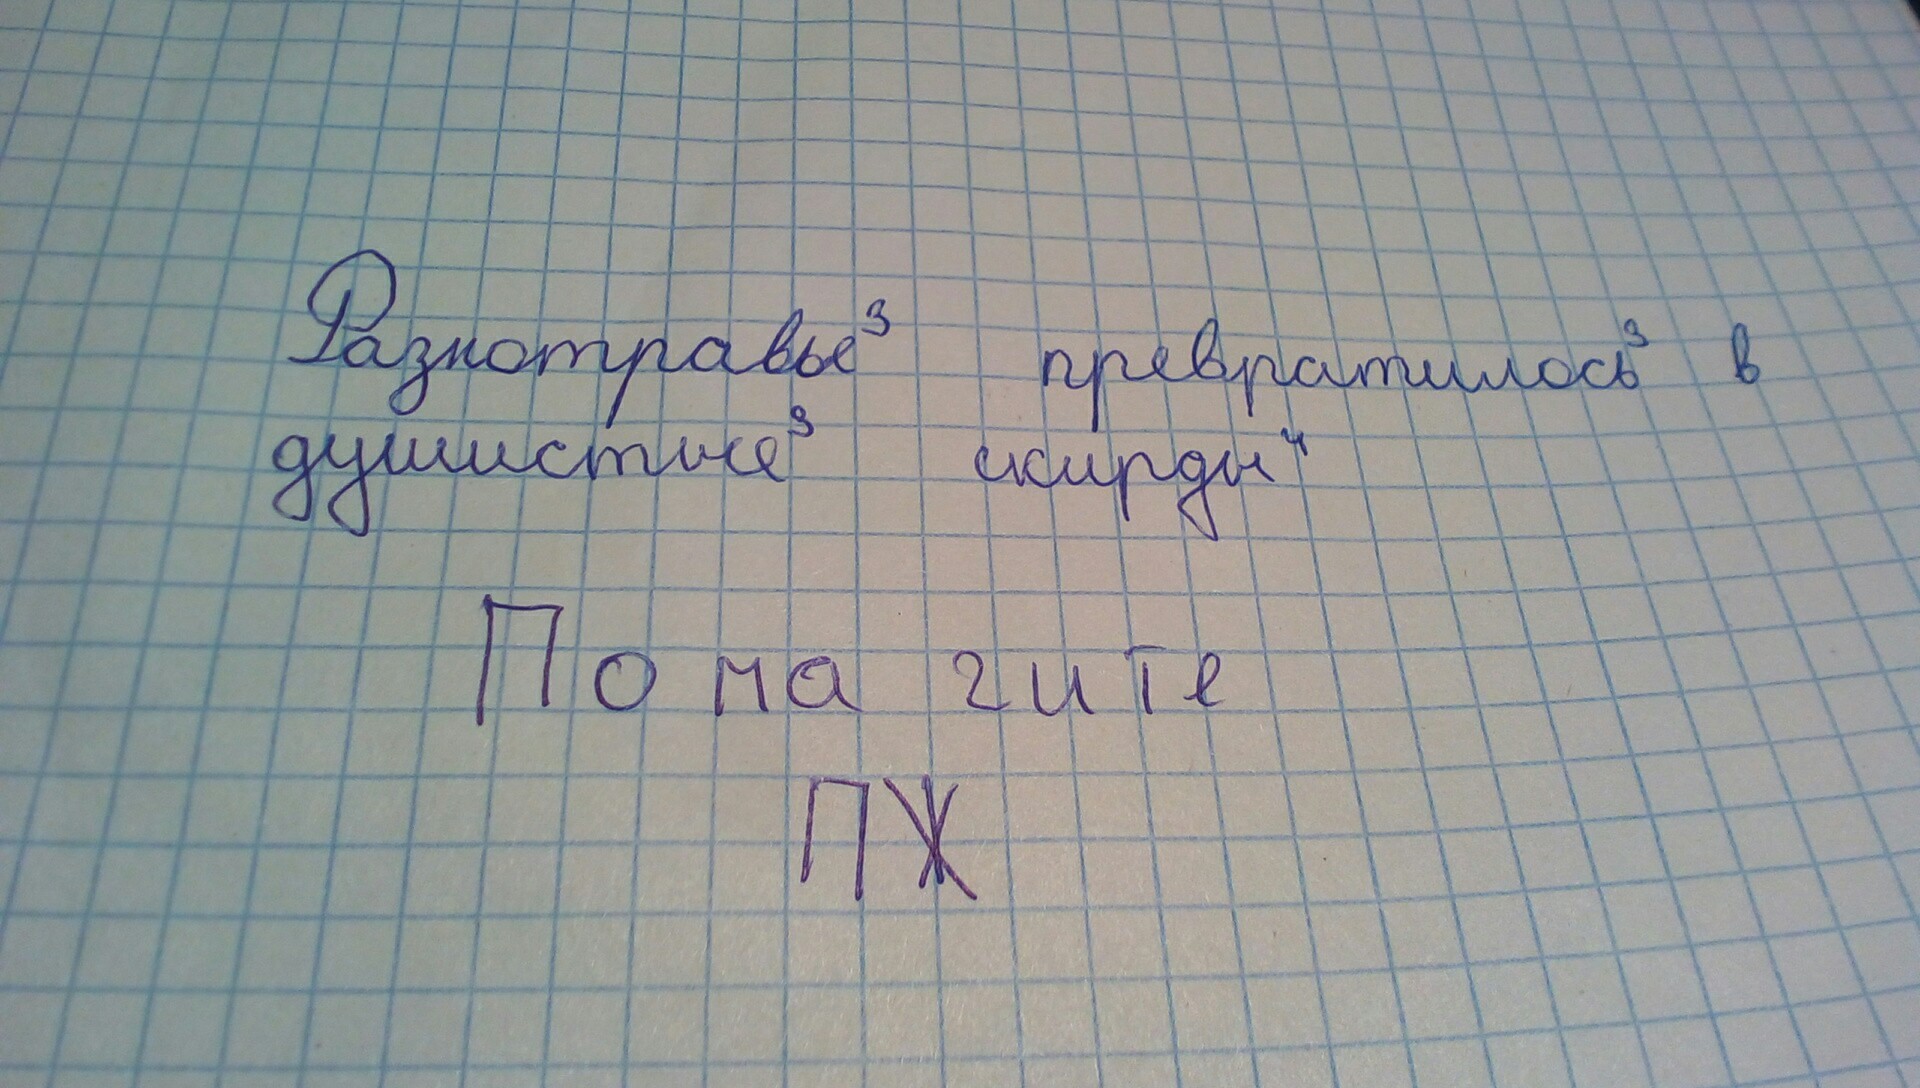 Разнотравье³ превратилось³ в
душистые³ скирды⁴
Пома гите
ПЖ